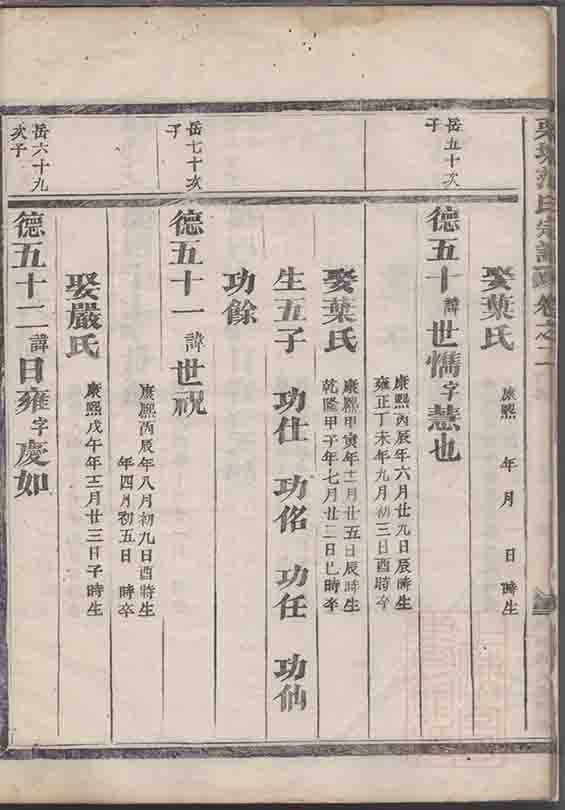 氏宗譜 卷之二
娶葉氏
康熙 年 月 日 時生
岳五十次子
德五十 諱世懦 字慧也
康熙丙辰年六月廿九日辰時生
雍正丁未年九月初三日酉時卒
娶葉氏
康熙甲寅年十二月廿五日辰時生
乾隆甲子年七月廿二日巳時卒
生五子 功仕 功佲 功任 功仙
功餘
岳七十次子
德五十一 諱世祝
康熙丙辰年八月初九日酉時生
年四月初五日 時卒
娶嚴氏
康熙戊午年十二月廿三日子時生
岳六十九次子
德五十二 諱日雍 字慶如